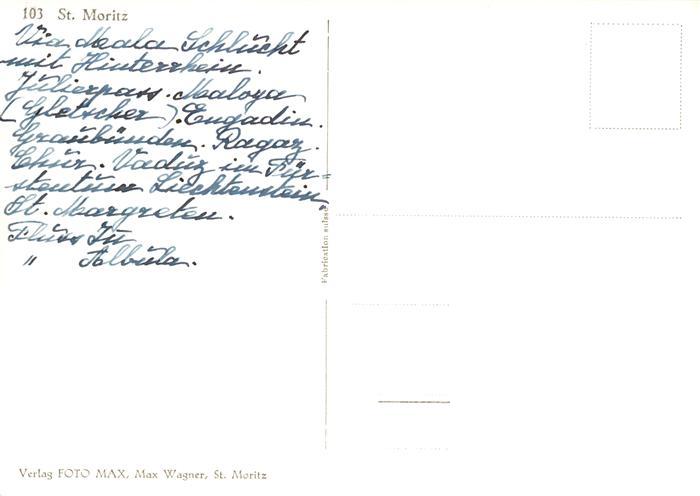 103 St. Moritz
Via Mala Schlücht
mit Hinterrhein.
Julierpass. Maloya
(Gletscher). Engadin.
Graubünden. Ragaz.
Chur. Vaduz im Für=
stentum Liechtenstein,
St. Margreten.
Fluss In
" Albula.
Fabrication suisse
Verlag FOTO MAX, Max Wagner, St. Moritz